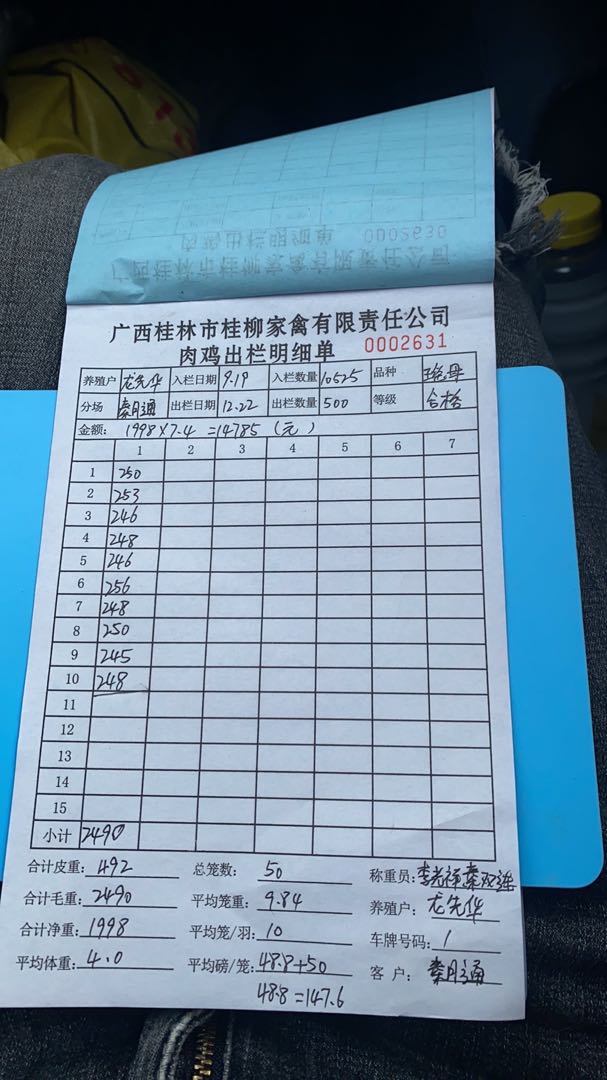 肉鸡出栏明细单 0002630
广西桂林市桂柳家禽有限责任公司
广西桂林市桂柳家禽有限责任公司
肉鸡出栏明细单 0002631
养殖户 龙先华 入栏日期 9.19 入栏数量 10525 品种
分场 秦月通 出栏日期 12.22 出栏数量 500 等级 合格
金额: 1998×7.4=14785(元)
1 2 3 4 5 6 7
1 250
2 253
3 246
4 248
5 246
6 256
7 248
8 250
9 245
10 248
11
12
13
14
15
小计 2490
合计皮重: 492 总笼数: 50 称重员:
合计毛重: 2490 平均笼重: 9.84 养殖户: 龙先华
合计净重: 1998 平均笼/羽: 10 车牌号码: 1
平均体重: 4.0 平均磅/笼: 48.8+50 客户: 秦月通
48.8=147.6